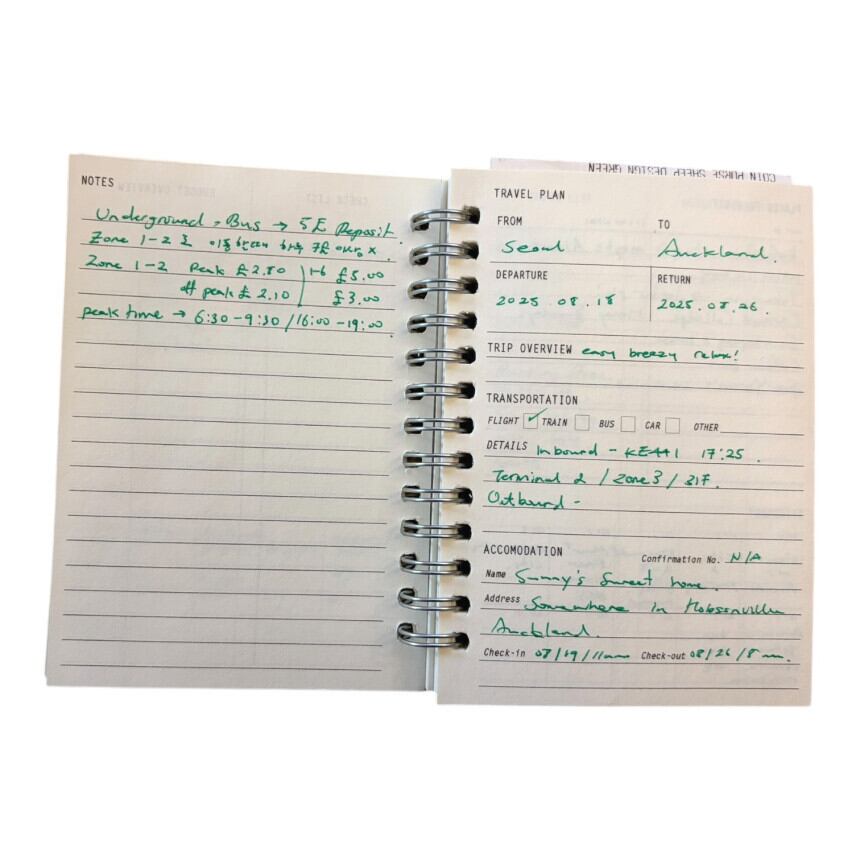 NOTES
Underground, Bus → 5£ Deposit.
Zone 1-2 
Zone 1-2 Peak £2.80 1-6 £5.00
off peak £ 2.10 £3.00
peak time → 6:30-9:30/16:00-19:00
COIN PURSE SHEEP DESIGN GREEN
TRAVEL PLAN
FROM TO
Seoul Auckland.
DEPARTURE RETURN
2025.08.18 2025.08.26.
TRIP OVERVIEW easy breezy relax!
TRANSPORTATION
FLIGHT ✓ TRAIN BUS CAR OTHER
DETAILS Inbound - KE441 17:25.
Terminal 2 / Zone 3 / 317.
Outbound -
ACCOMODATION Confirmation No. N/A
Name Sunny's Sweet home.
Address Somewhere in Hobsonville
Auckland.
Check-in 08/19/11am Check-out 08/26/8am.